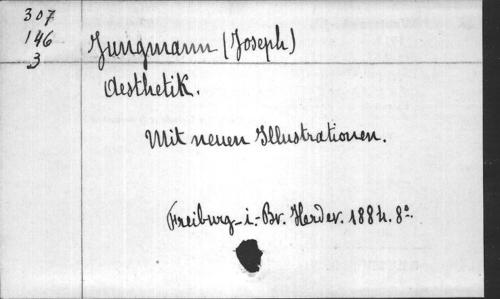 307
146
3
Jungmann (Joseph)
Aesthetik.
Mit neuen Illustrationen.
Freiburg-i.-Br. Herder. 1884. 8º.